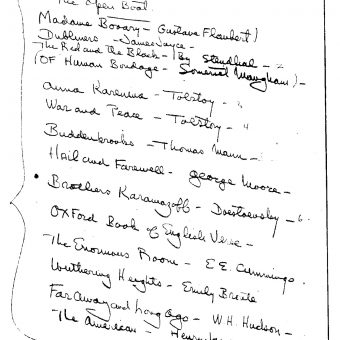 The Open Boat
Madame Bovary - Gustave Flaubert)
Dubliners - James Joyce -
The Red and the Black - (By Stendhal -
(Of Human Bondage - Somerset Maugham) -
Anna Karenina - Tolstoy - "
War and Peace - Tolstoy - "
Buddenbrooks - Thomas Mann -
Hail and Farewell - George Moore -
Brothers Karamazoff - Dostoevsky -
Oxford Book of English Verse -
The Enormous Room - E.E. Cummings.
Wuthering Heights - Emily Bronte
Far Away and Long Ago - W.H. Hudson -
The American -